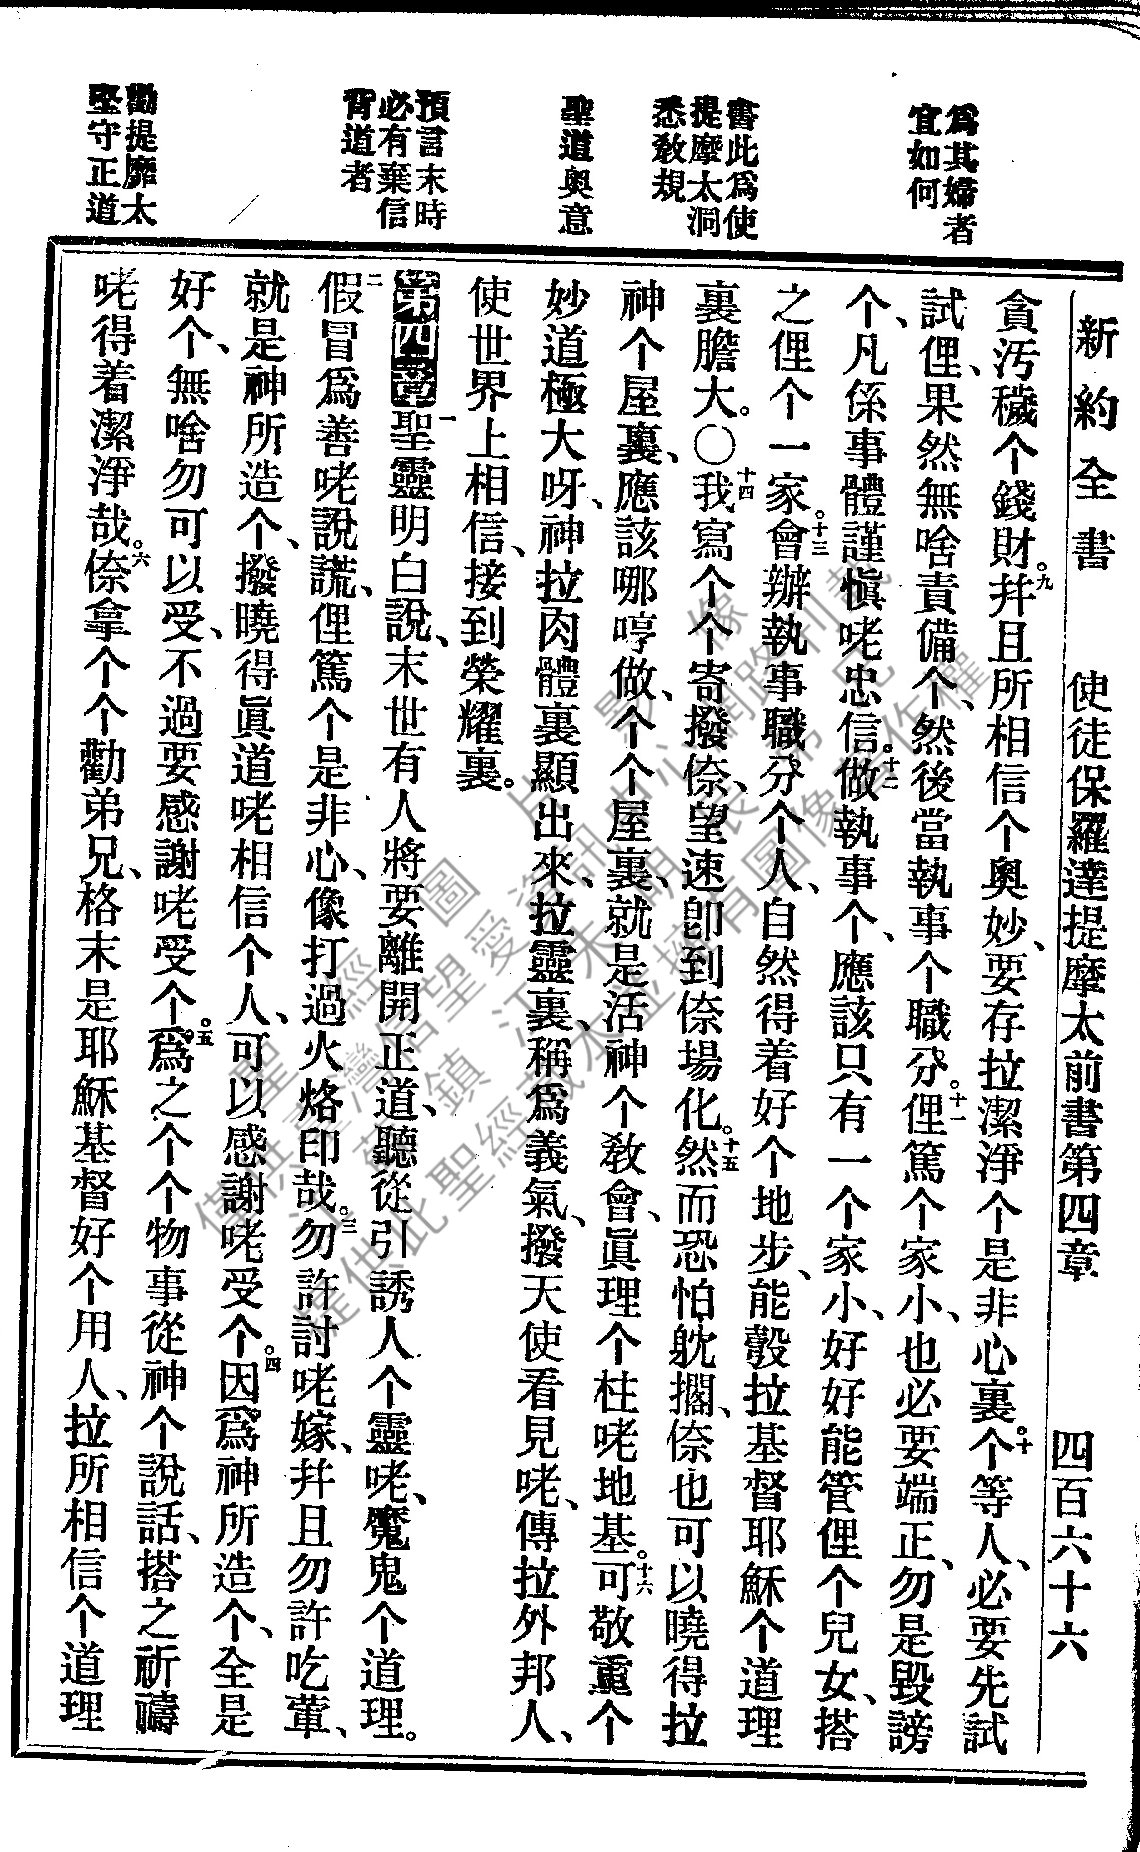 爲其婦者
宜如何
書此爲使
提摩太洞
悉敎規
聖道奥意
預言末時
必有棄信
背道者
勸提摩太
堅守正道
新約全書 使徒保羅達提摩太前書第四章 四百六十六
貪汚穢个錢財。九幷且所相信个奥妙、要存拉潔淨个是非心裏。十个等人、必要先試
試俚、果然無啥責備个、然後當執事个職分。十一俚篤个家小、也必要端正、勿是毀謗
个、凡係事體謹愼咾忠信。十二做執事个、應該只有一个家小、好好能管俚个兒女、搭
之俚个一家。十三會辦執事職分个人、自然得着好个地步、能彀拉基督耶穌个道理
裏膽大。〇十四我寫个个寄撥㑚、望速卽到㑚場化。十五然而恐怕躭擱、㑚也可以曉得拉
神个屋裏、應該哪哼做、个个屋裏、就是活神个敎會、眞理个柱咾地基。十六可敬重个
妙道極大呀、神拉肉體裏顯出來、拉靈裏、稱爲義氣、撥天使看見咾、傳拉外邦人、
使世界上相信、接到榮耀裏。
第四章一聖靈明白說、末世有人將要離開正道、聽從引誘人个靈咾、魔鬼个道理。
二假冒爲善咾說謊、俚篤个是非心、像打過火烙印哉。三勿許討咾嫁、幷且勿許吃葷、
就是神所造个、撥曉得眞道咾相信个人、可以感謝咾受个。四因爲神所造个、全是
好个、無啥勿可以受、不過要感謝咾受个。五爲之个个物事從神个說話、搭之祈禱
咾得着潔淨哉。六㑚拿个个勸弟兄、格末是耶穌基督好个用人、拉所相信个道理
僅供臺灣信望愛資訊中心網路刊載
提供此聖經